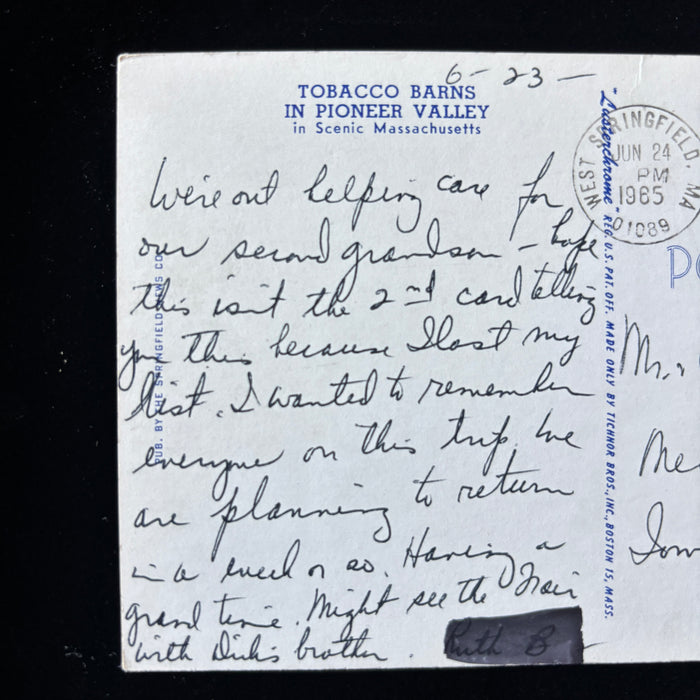 6-23-
TOBACCO BARNS
IN PIONEER VALLEY
in Scenic Massachusetts
We're out helping care for
our second grandson - hope
this isn't the 2nd card telling
you this because I lost my
list. I wanted to remember
everyone on this trip. We
are planning to return
in a week or so. Having a
grand time. Might see the Fair
with Dick's brother.
Ruth B
PUB. BY THE SPRINGFIELD NEWS CO
"Lusterchrome" REG. U.S. PAT. OFF. MADE ONLY BY TICHNOR BROS., INC., BOSTON 15, MASS.
WEST SPRINGFIELD, MA
JUN 24
PM
1965
01089
PO
Mr.
Me
Iow